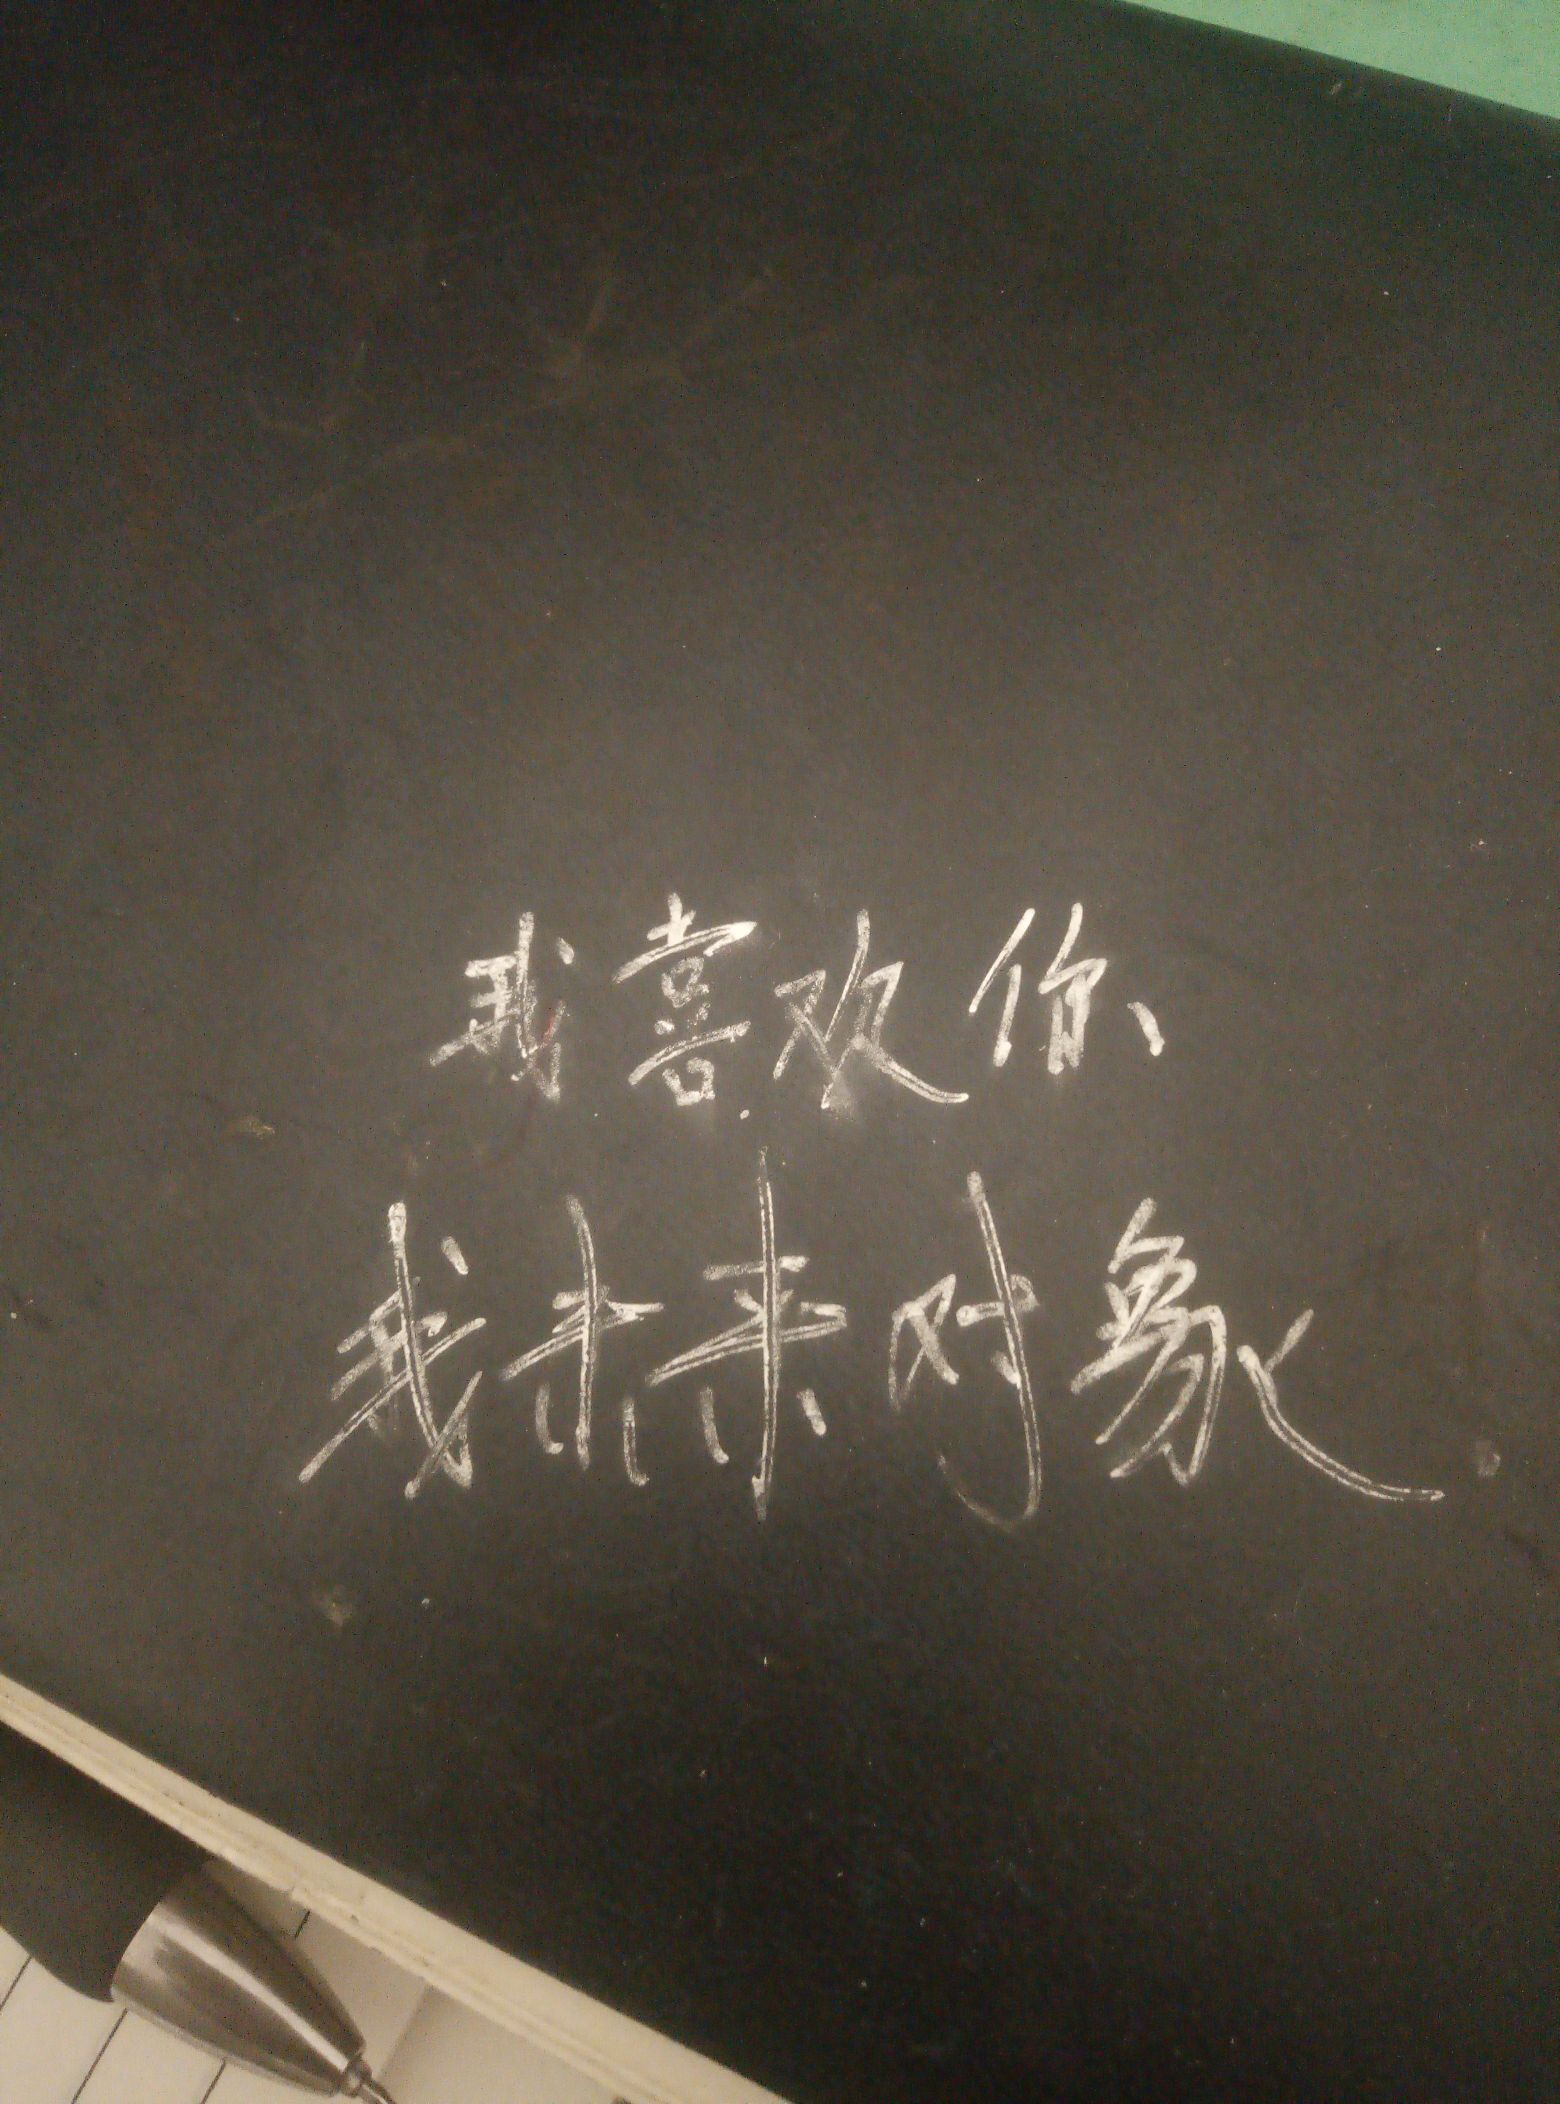 我喜欢你、
我未来对象